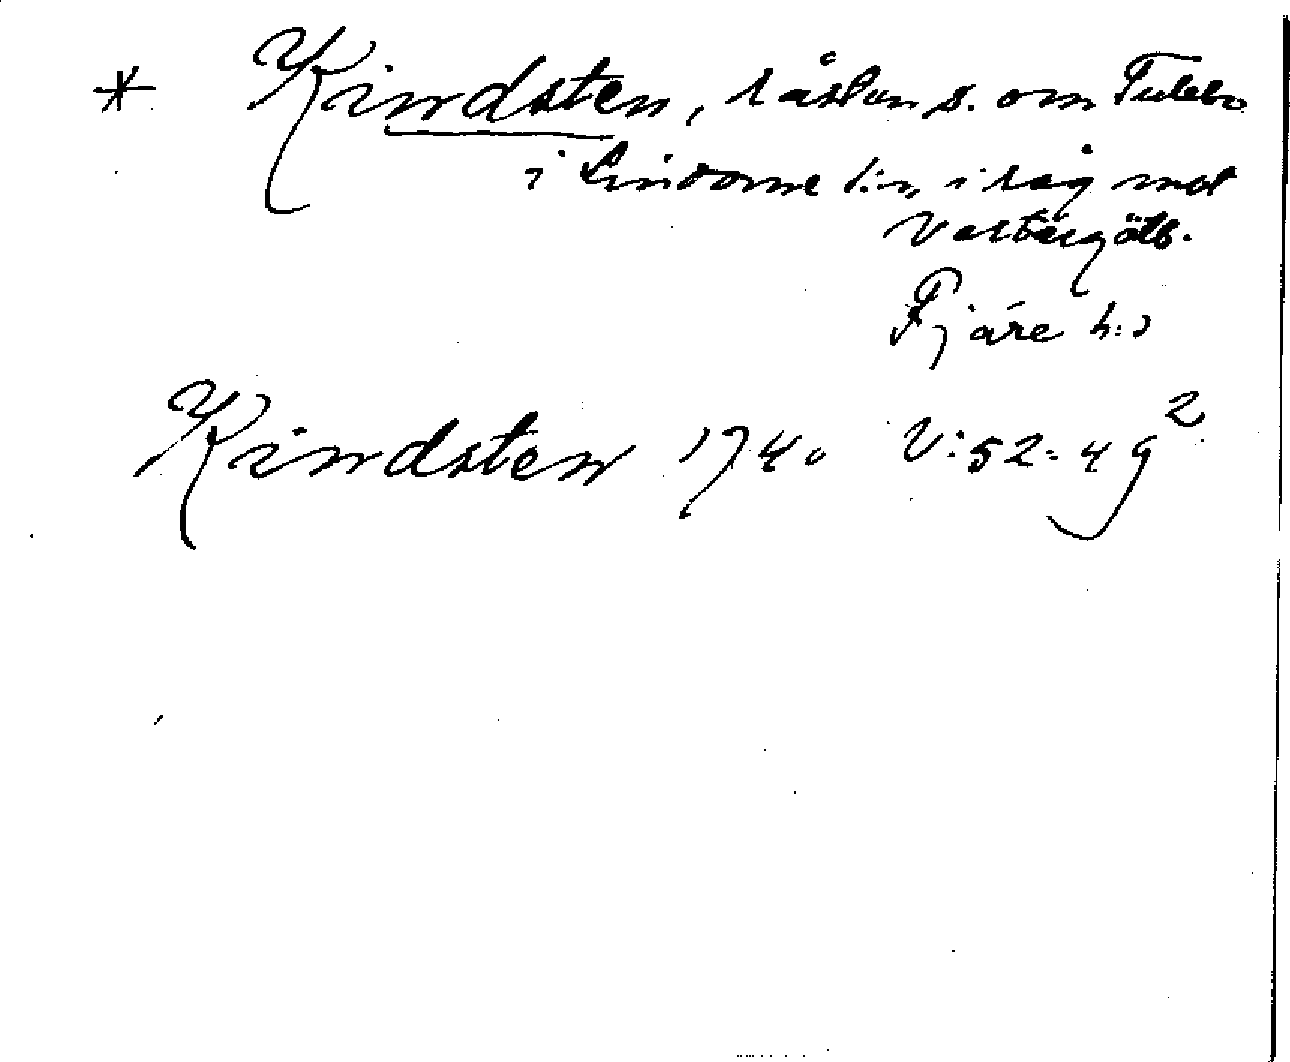 * Kindsten, råstan s. om Tulebo
i Lindome s:n, i råg mot
Västergötl.
Fjäre h:d
Kindsten 1740 V:52:4 g²